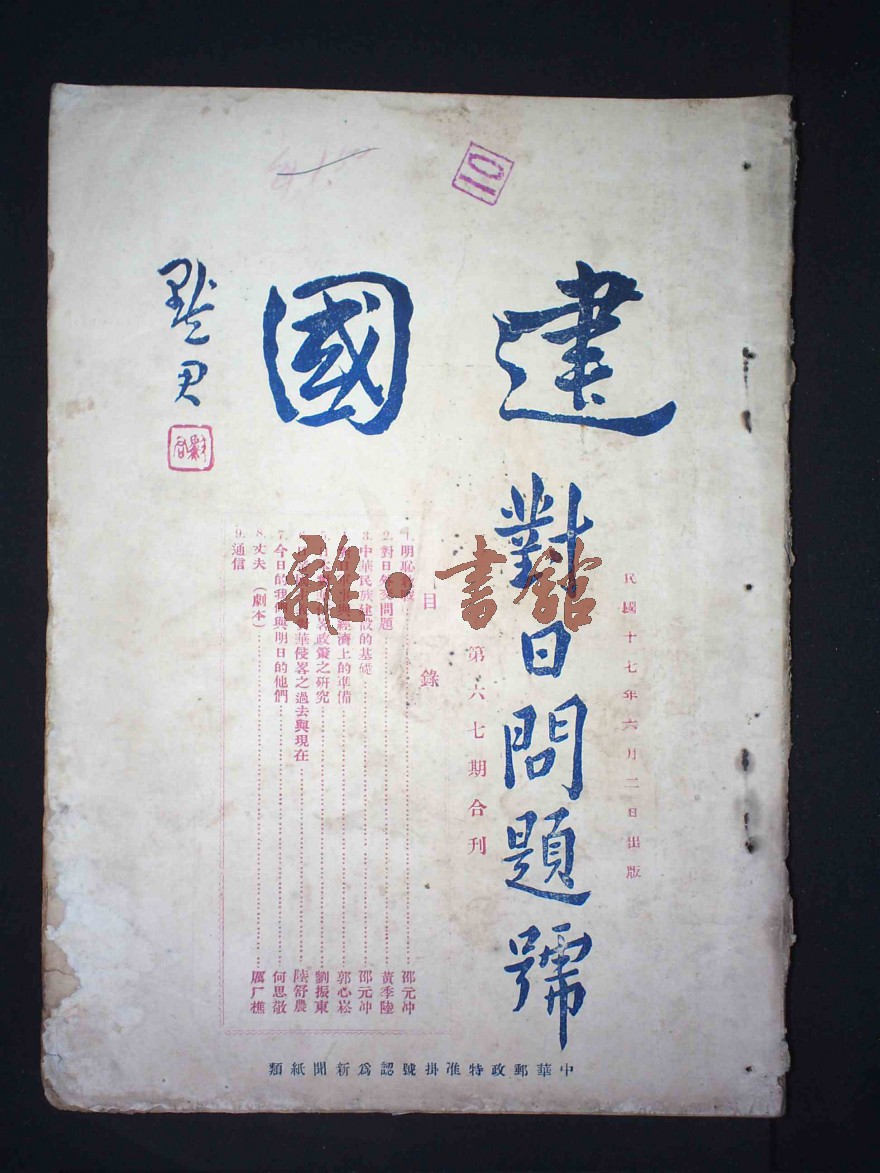 110
建國
默君
對日問題號
民國十七年六月二日出版
第六七期合刊
目錄
1. 明恥 邵元冲
2. 對日外交問題 黃季陸
3. 中華民族建設的基礎 邵元冲
經濟上的準備 郭心崧
政策之研究 劉振東
華侵畧之過去與現在 陸舒農
7. 今日的我們與明日的他們 何思敬
8. 丈夫(劇本) 厲厂樵
9. 通信
中華郵政特准掛號認爲新聞紙類
雜·書館